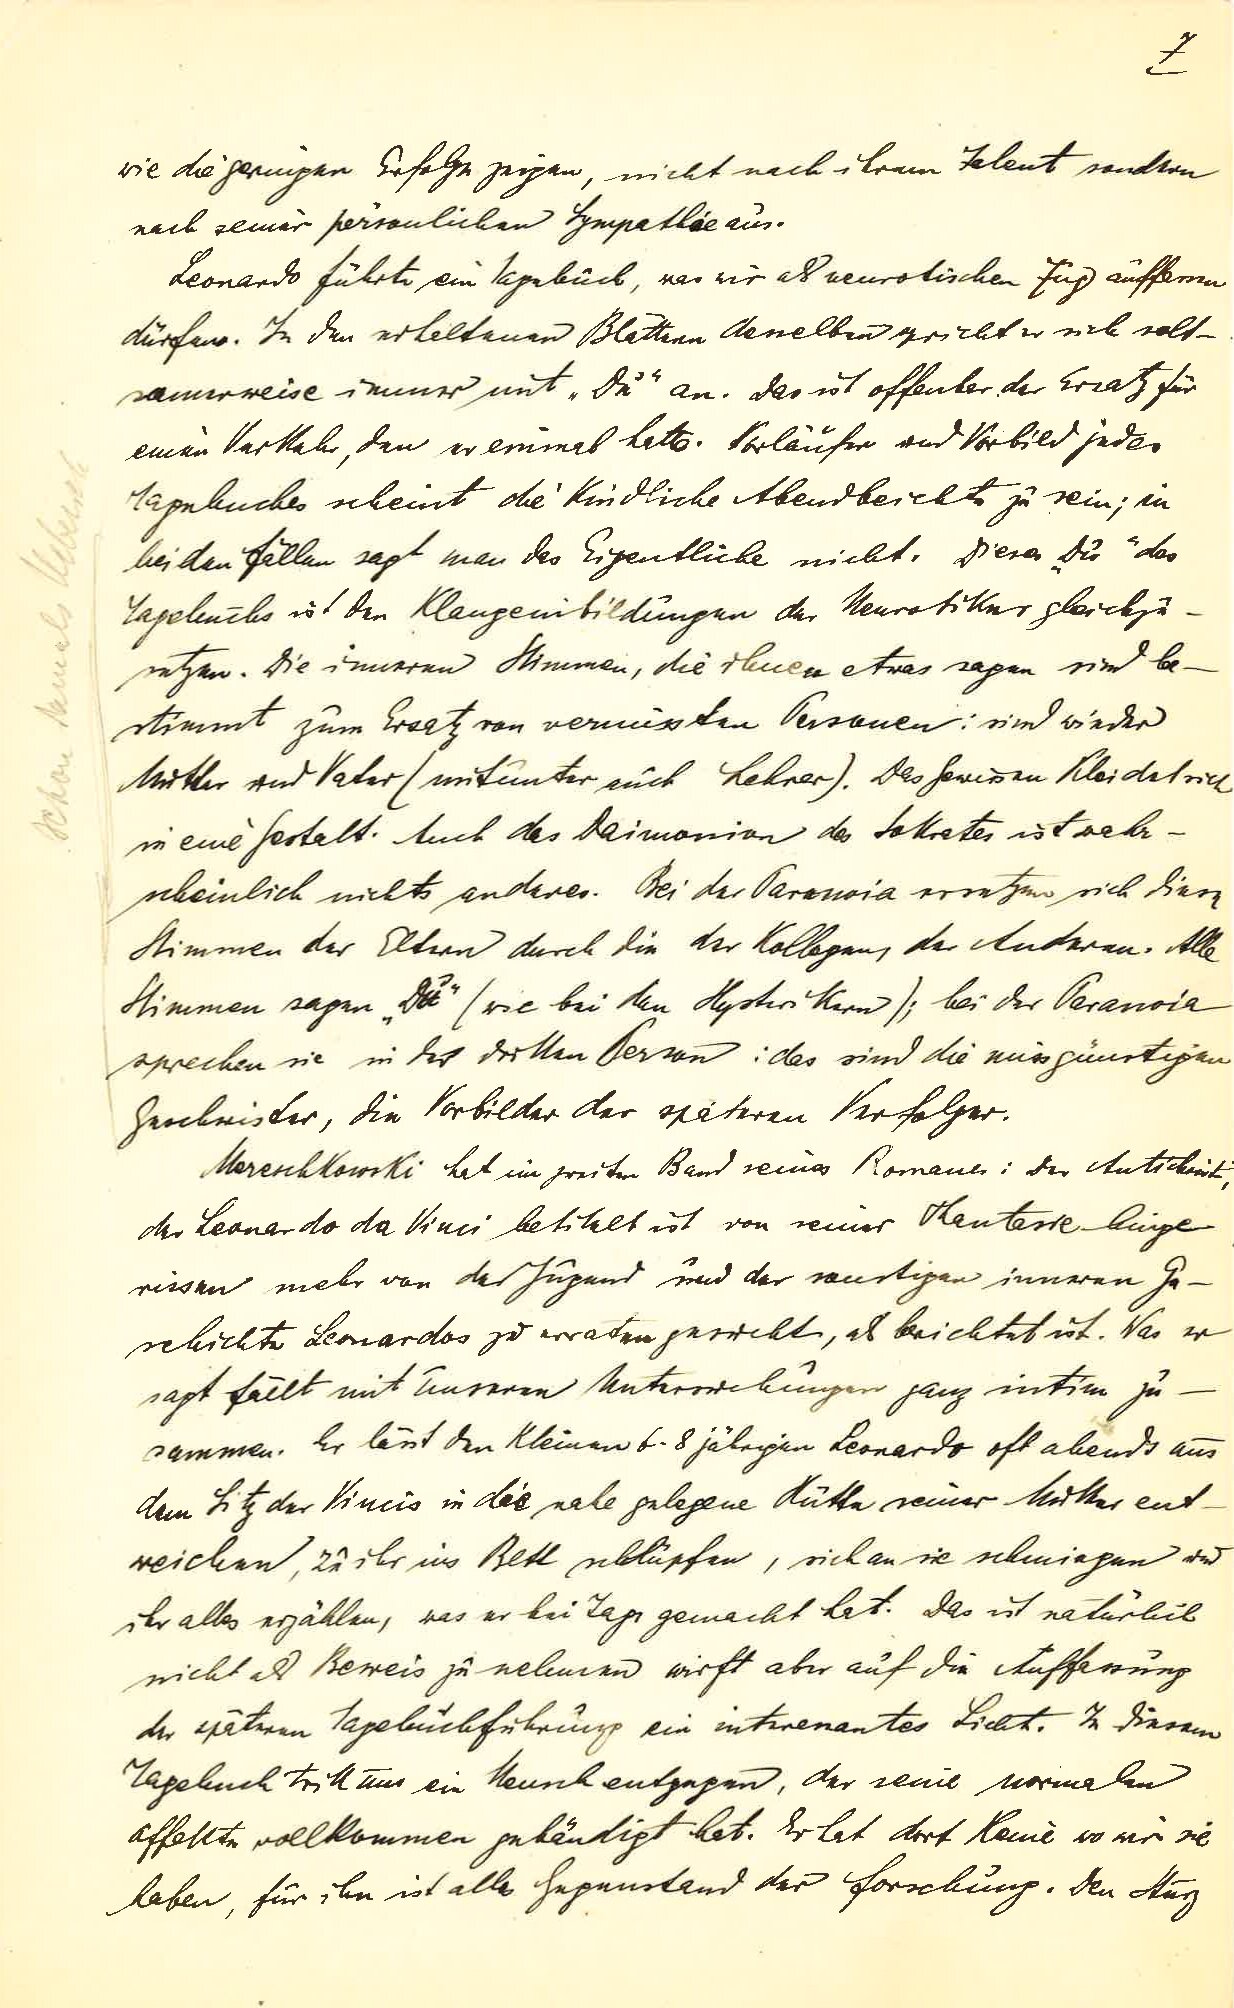 7
wie die geringen Erfolge zeigen, nicht nach ihrem Talent sondern
nach seiner persönlichen Sympathie aus.
Leonardo führte ein Tagebuch, was wir als neurotischen Zug auffassen
dürfen. In den erhaltenen Blättern desselben spricht er sich selt-
samerweise immer mit „Du“ an. Das ist offenbar der Ersatz für
einen Verkehr, den er einmal hatte. Vorläufer und Vorbild jedes
Tagebuches scheint die kindliche Abendbeichte zu sein; in
beiden Fällen sagt man das Eigentliche nicht. Dieses „Du“ des
Tagebuchs ist den Klangeinbildungen der Neurotiker gleichzu-
setzen. Die inneren Stimmen, die ihnen etwas sagen sind be-
stimmt zum Ersatz von vermissten Personen: sind wieder
Mutter und Vater (mitunter auch Lehrer). Das Gewissen kleidet sich
in eine Gestalt. Auch das Daimonion des Sokrates ist wahr-
scheinlich nichts anderes. Bei der Paranoia ersetzen sich diese
Stimmen der Eltern durch die der Kollegen, der Anderen. Alle
Stimmen sagen „Du“ (wie bei den Hysterikern); bei der Paranoia
sprechen sie in der dritten Person: das sind die missgünstigen
Geschwister, die Vorbilder der späteren Verfolger.
Mereschkowski hat im zweiten Band seines Romanes: Der Antichrist,
der Leonardo da Vinci betitelt ist von seiner Phantasie hinge
rissen mehr von der Jugend und der sonstigen inneren Ge-
schichte Leonardos zu erraten gesucht, als berichtet ist. Was er
sagt fällt mit unseren Untersuchungen ganz intim zu-
sammen. Er lässt den kleinen 6-8 jährigen Leonardo oft abends aus
dem Sitz der Vincis in die nahe gelegene Hütte seiner Mutter ent-
weichen, zu ihr ins Bett schlüpfen, sich an sie schmiegen und
ihr alles erzählen, was er bei Tage gemacht hat. Das ist natürlich
nicht als Beweis zu nehmen wirft aber auf die Auffassung
der späteren Tagebuchführung ein interessantes Licht. In diesem
Tagebuch tritt uns ein Mensch entgegen, der seine normalen
Affekte vollkommen gebändigt hat. Er hat dort keine wo wir sie
haben, für ihn ist alles Gegenstand der Forschung. Den Sturz
Schon damals Ueberich